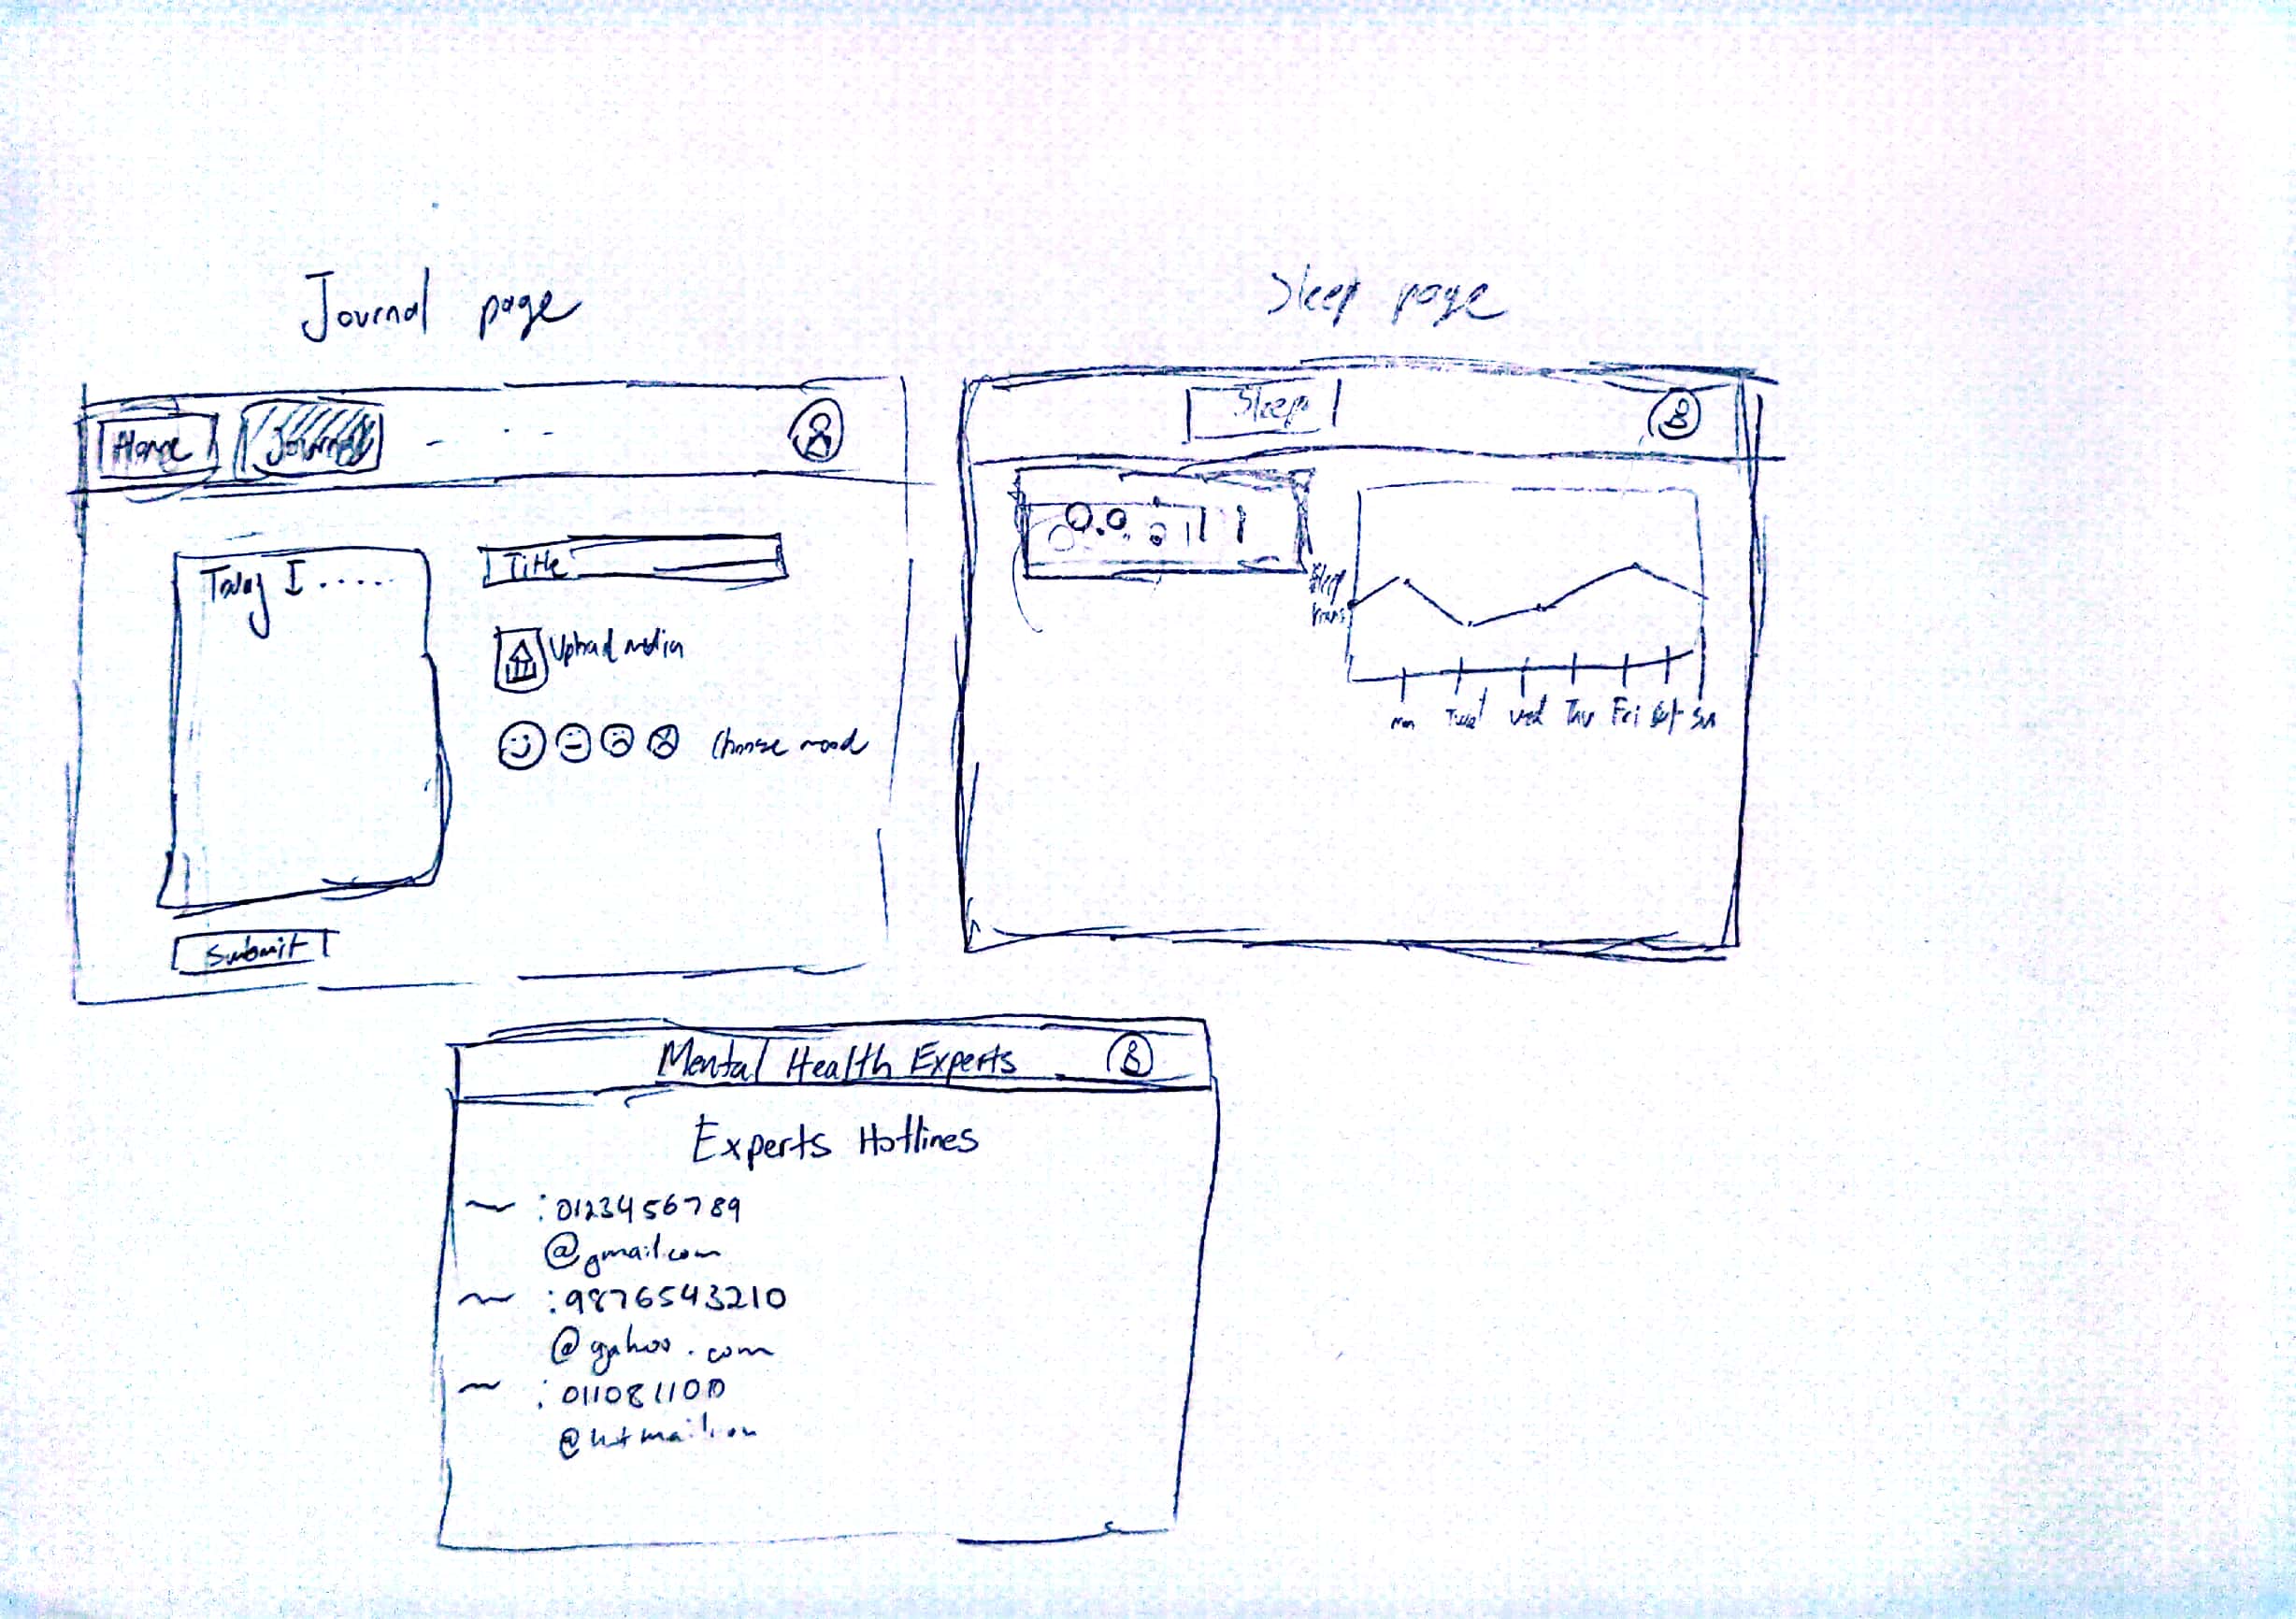 Journal page
Home
Journal
Today I .....
Title
Upload media
Choose mood
Submit
Sleep page
Sleep
Sleep
Mon Tues Wed Thu Fri Sat Sun
Mental Health Experts
Experts Hotlines
~ : 0123456789
@gmail.com
~ : 9876543210
@yahoo.com
~ : 011081100